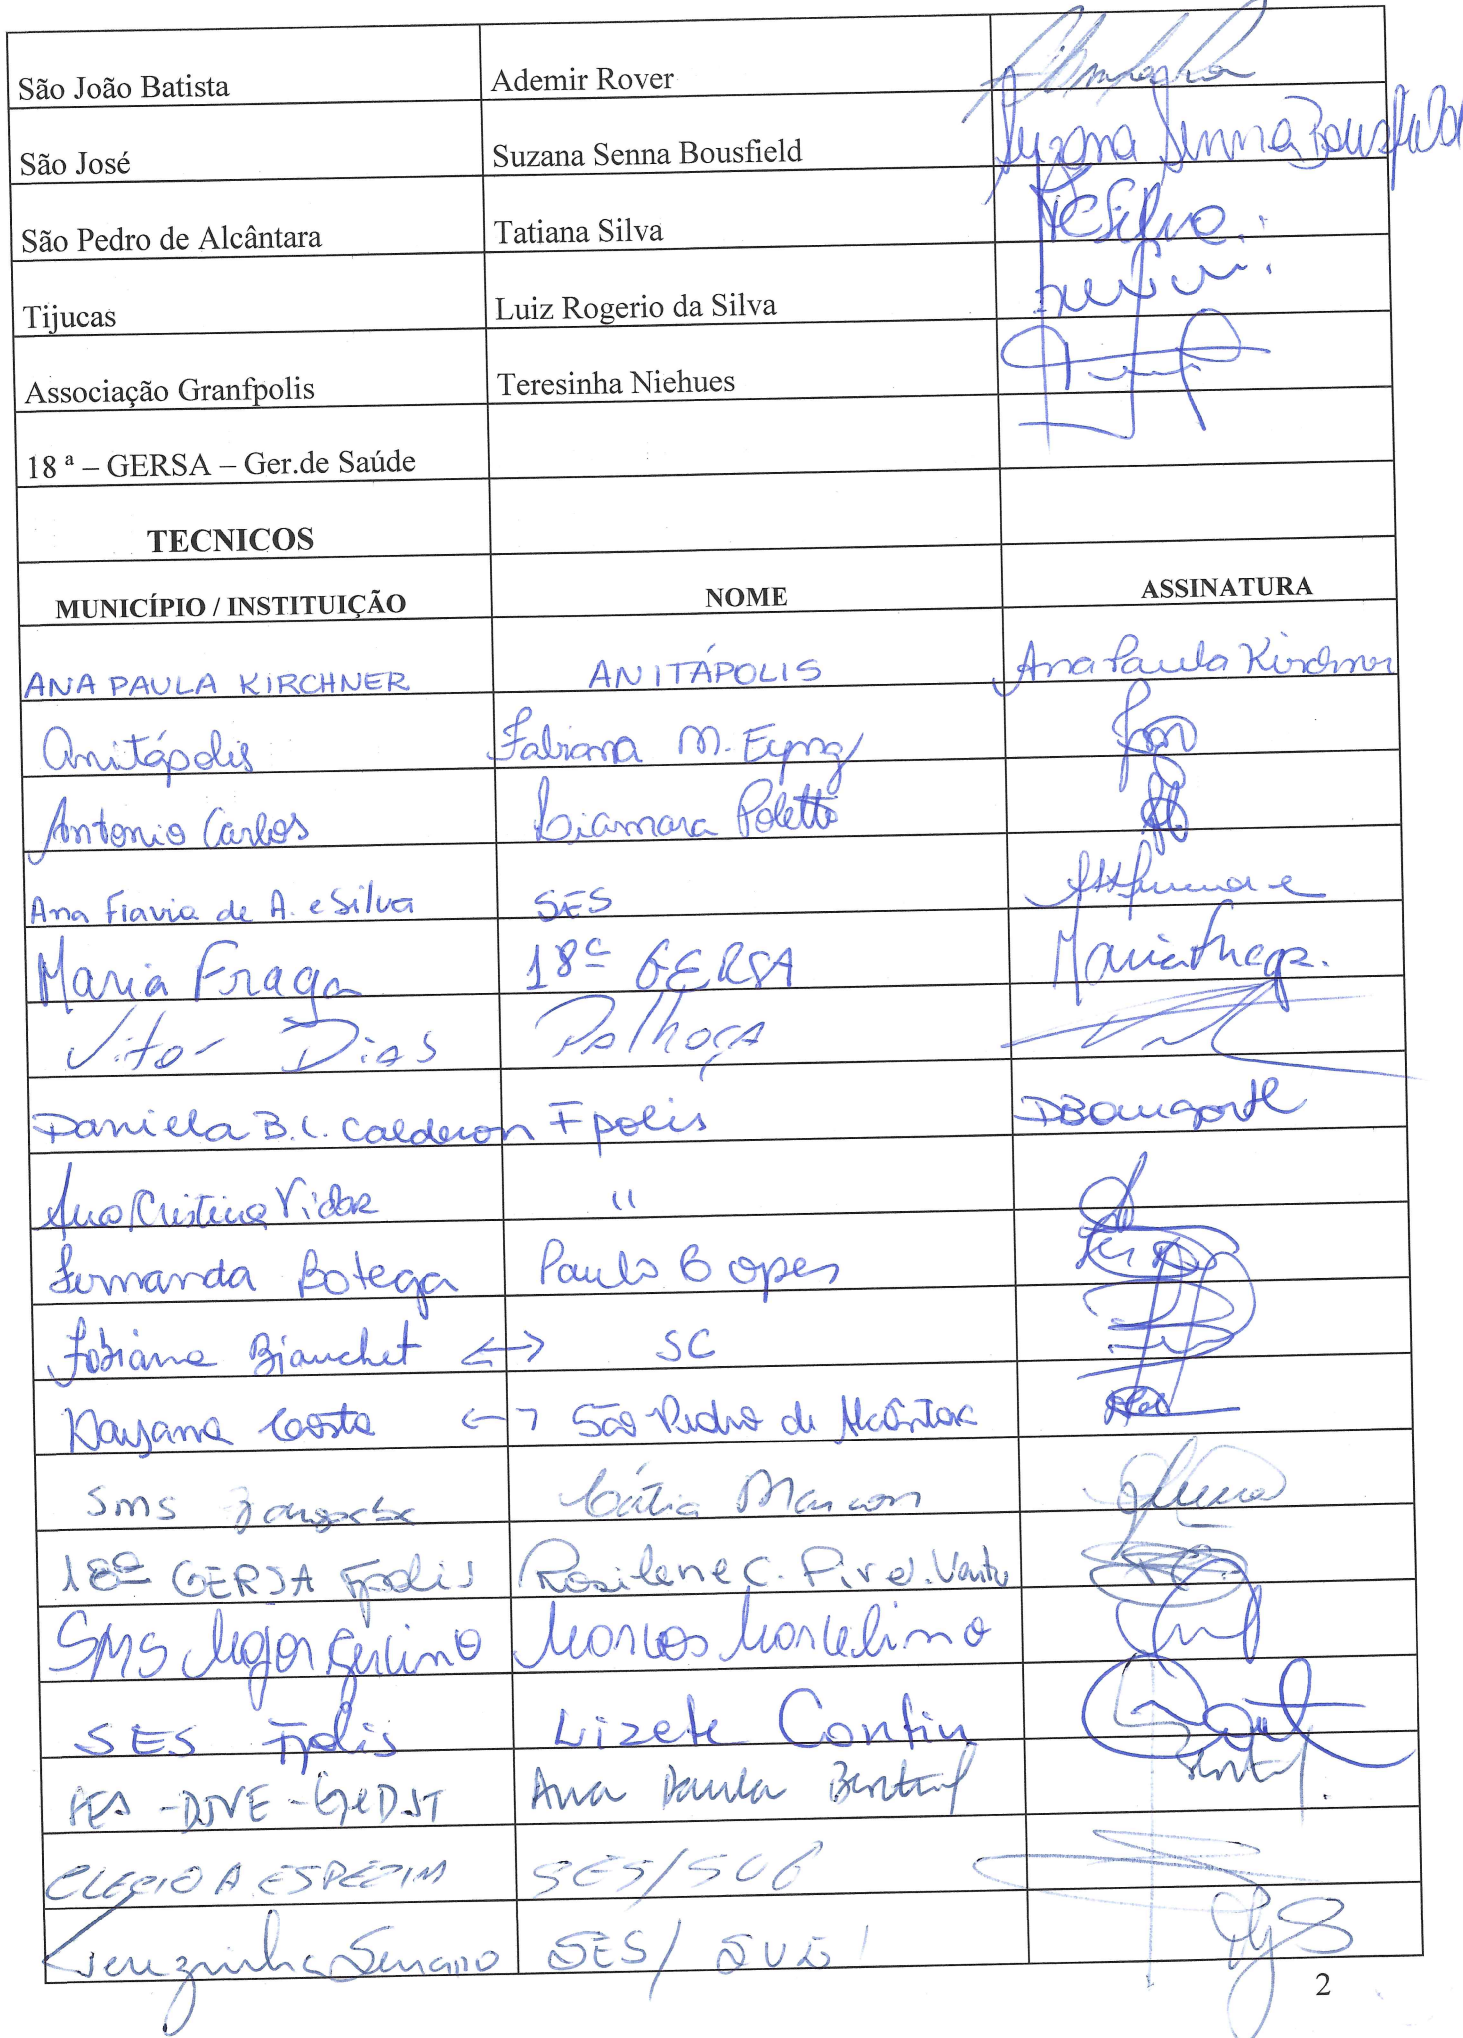 São João Batista Ademir Rover
São José Suzana Senna Bousfield Suzana Senna Bousfield
São Pedro de Alcântara Tatiana Silva TCSilva.
Tijucas Luiz Rogerio da Silva
Associação Granfpolis Teresinha Niehues
18 ª – GERSA – Ger.de Saúde
TECNICOS
MUNICÍPIO / INSTITUIÇÃO NOME ASSINATURA
ANA PAULA KIRCHNER ANITÁPOLIS Ana Paula Kirchner
Anitápolis Fabiana M. Eyng
Antonio Carlos Liamara Poletto
Ana Flavia de A. e Silva SES
Maria Fraga 18ª GERSA Maria Fraga.
Vitor Dias Palhoça
Daniela B. C. Calderon Fpolis
Ana Cristina Vidor "
Fernanda Botega Paulo Lopes
Fabiana Bianchet <-> SC
Dayana Costa <-> São Pedro de Alcântara
SMS Cátia Marcon
18ª GERSA Fpolis Rosilene C.
SMS Major Gercino Marcos Marcelino
SES Fpolis Lizete Contin
SES - DIVE - GEDST Ana Paula
CLECIO A ESPEZIM SES/SUG
Terezinha Serrano SES/
2